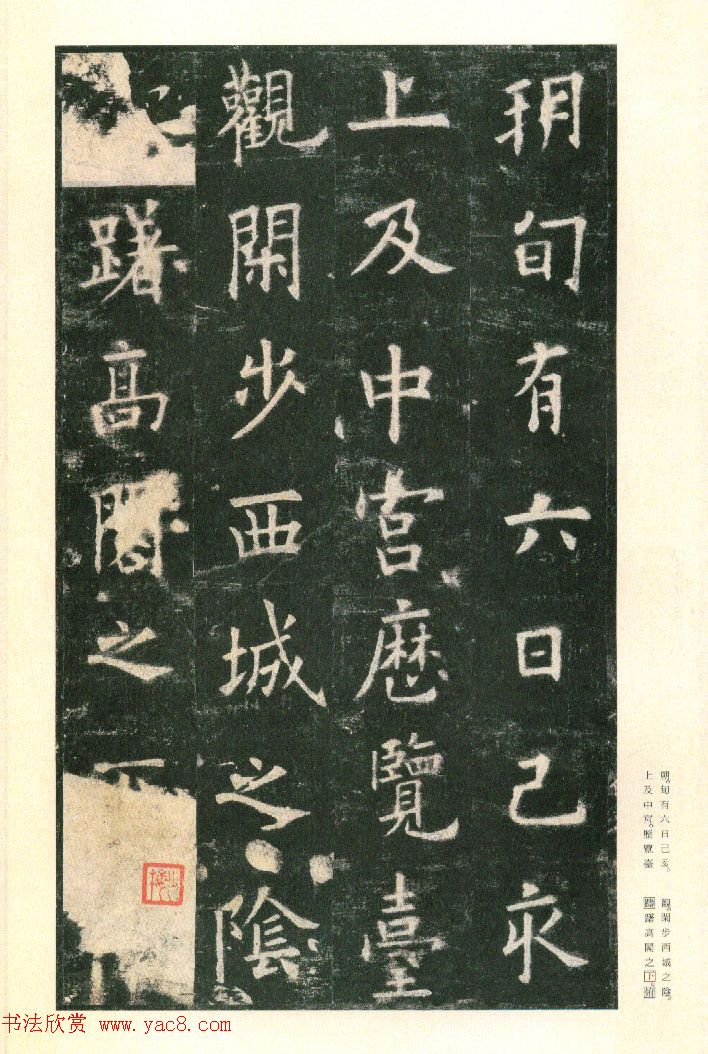 朔旬有六日己亥
上及中宮歷覽臺
觀閑步西城之陰
躇高閣之下
朔。旬有六日己亥。
上及中宮。歷覽臺
觀。閑步西城之陰。
躊躇高閣之下。
书法欣赏 www.yac8.com